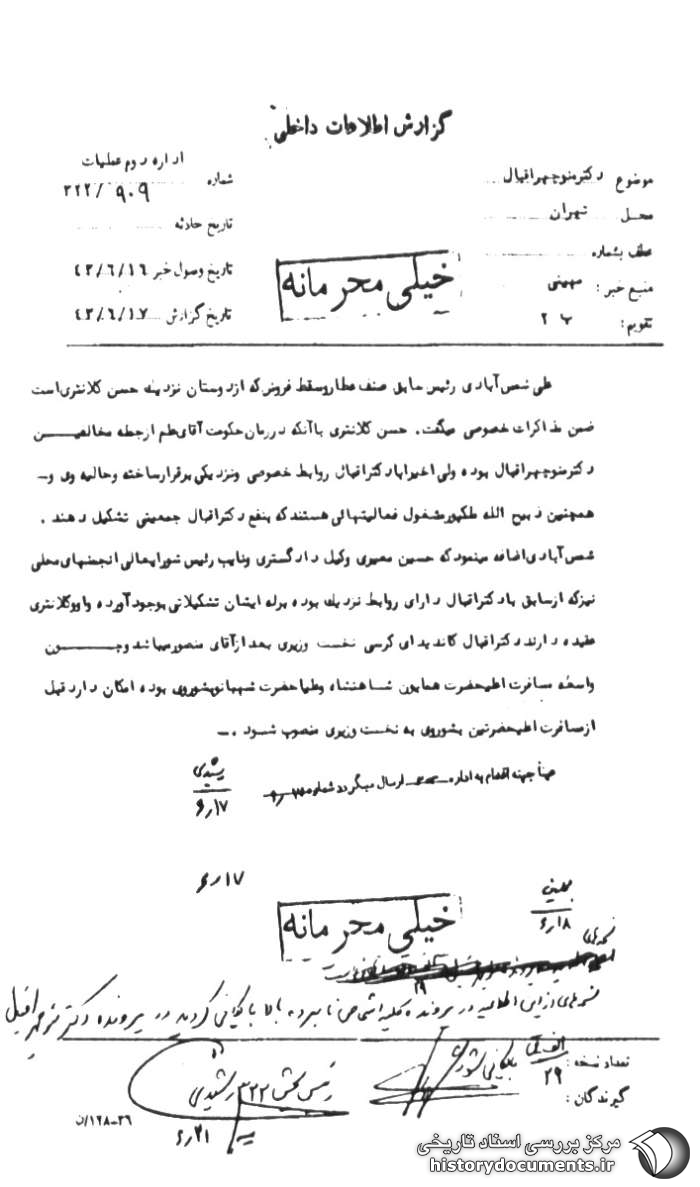 گزارش اطلاعات داخلی
موضوع دکتر منوچهر اقبال
محل تهران
عطف بشماره
منبع خبر :
تقویم :
اداره دوم عملیات
شماره ۳۲۲/ ۹۰۹
تاریخ حادثه
تاریخ وصول خبر ۴۳/۶/۱۶
تاریخ گزارش ۴۳/۶/۱۷
خیلی محرمانه
علی شمس آبادی رئیس سابق صنف عطار و سقط فروش که از دوستان نزدیک حسن کلانتری است
ضمن مذاکرات خصوصی میگفت، حسن کلانتری با آنکه در زمان حکومت آقای علم از جمله مخالفین
دکتر منوچهر اقبال بوده ولی اخیرا با دکتر اقبال روابط خصوصی و نزدیکی برقرار ساخته و حالیه وی و-
همچنین ذبیح الله ملکپور مشغول فعالیتهائی هستند که بنفع دکتر اقبال جمعیتی تشکیل دهند .
شمس آبادی اضافه مینمود که حسین معیری وکیل دادگستری و نایب رئیس شورایعالی انجمنهای محلی
نیز که از سابق با دکتر اقبال دارای روابط نزدیک بوده برله ایشان تشکیلاتی بوجود آورده و او و کلانتری
عقیده دارند دکتر اقبال کاندیدای کرسی نخست وزیری بعد از آقای منصور میباشد و چون
واسطه مسافرت اعلیحضرت همایون شاهنشاه و علیاحضرت شهبانو بشوروی بوده امکان دارد قبل
از مسافرت اعلیحضرتین بشوروی به نخست وزیری منصوب شود .-
عیناً جهت اقدام به اداره ارسال میگردد شماره
رشیدی
۶/۱۷
۶/۱۷
۶/۱۸
خیلی محرمانه
نسخه‌ای از این اطلاعیه در پرونده کلیه اشخاص نامبرده بالا بایگانی گردید در پرونده دکتر منوچهر اقبال
تعداد نسخه :
گیرندگان :
۲۹
بایگانی شود
رئیس بخش ۳۲۲ رشیدی
۶/۲۱
۳۶-۱۲۸/ن
مرکز بررسی اسناد تاریخی
historydocuments.ir